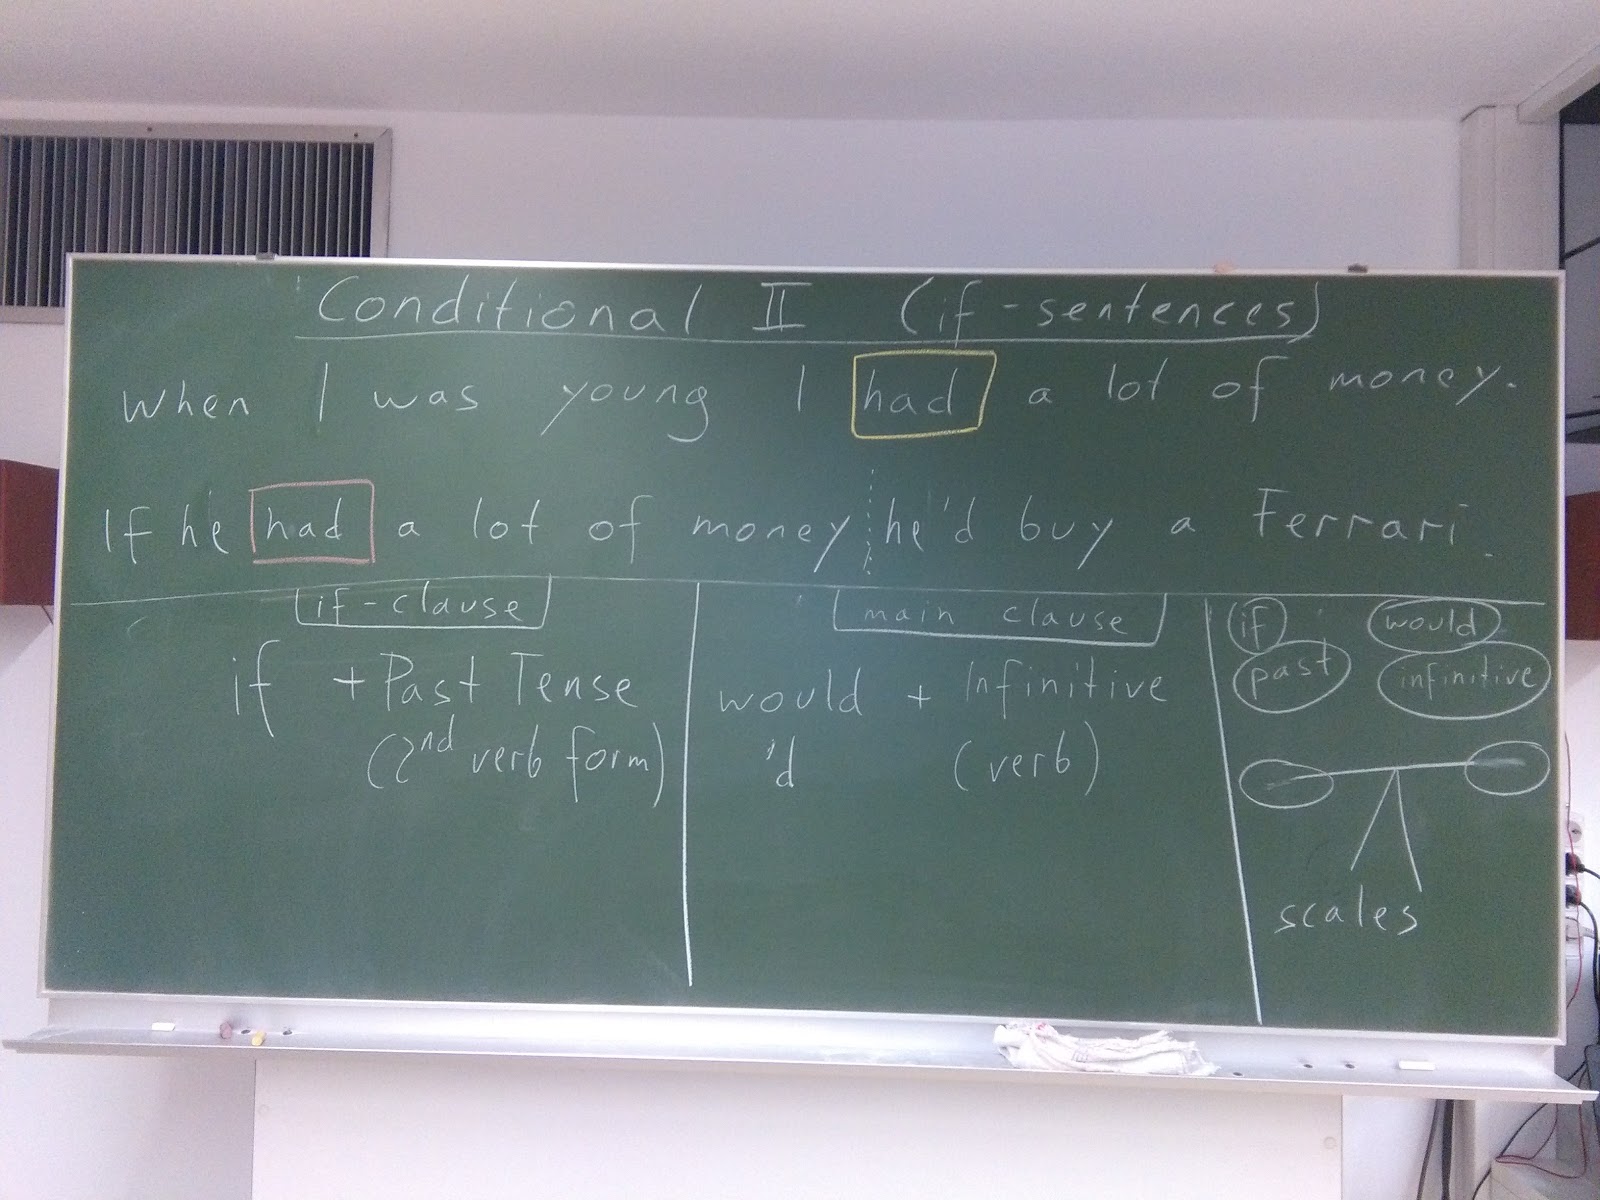 Conditional II (if-sentences)
When I was young I had a lot of money.
If he had a lot of money he'd buy a Ferrari.
if-clause
if + Past Tense
(2nd verb form)
main clause
would + Infinitive
'd (verb)
if would
past infinitive
scales